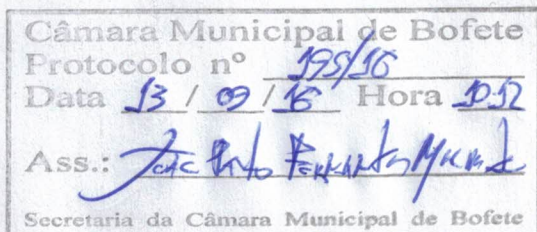 Câmara Municipal de Bofete
Protocolo nº 195/16
Data 13 / 09 / 16 Hora 10:52
Ass.:
Secretaria da Câmara Municipal de Bofete